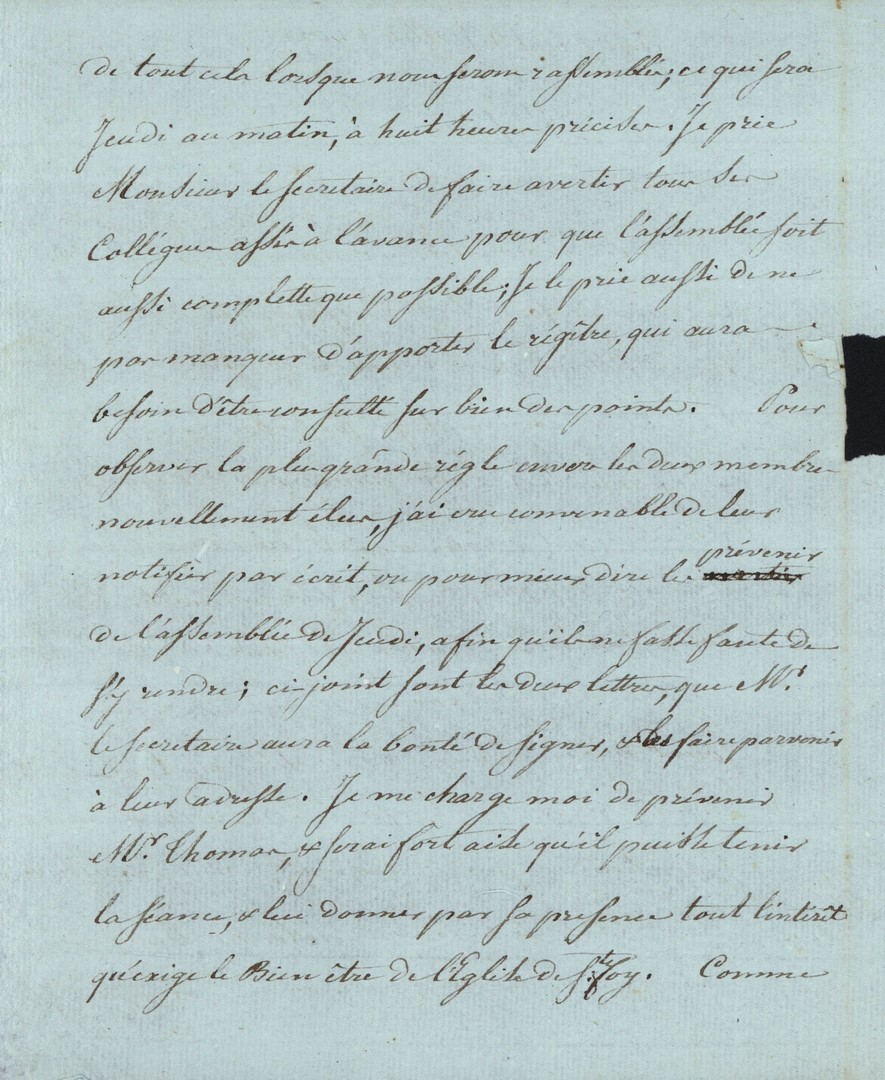 de tout cela lorsque nous serons rassemblés; ce qui sera
Jeudi au matin, à huit heures précises. Je prie
Monsieur le secretaire de faire avertir tous ses
Collégues assés à l'avance pour que l'assemblée soit
aussi complette que possible; Je le prie aussi de ne
pas manquer d'apporter le régître, qui aura
besoin d'être consulté sur bien des points. Pour
observer la plus grande régle envers les deux membres
nouvellement élus, j'ai cru convenable de leur
notifier par écrit, ou pour mieux dire les prévenir
de l'assemblée de Jeudi, afin qu'ils ne fasse faute de
s'y rendre; ci-joint sont les deux lettres, que Mr.
le secretaire aura la bonté de signer, & les faire parvenir
à leur adresse. Je me charge moi de prévenir
Mr. Thomas, & serai fort aise qu'il puisse tenir
la séance, & lui donner par sa presence tout l'intérêt
qu'exige le Bien être de l'Eglise de Ste. Foy. Comme